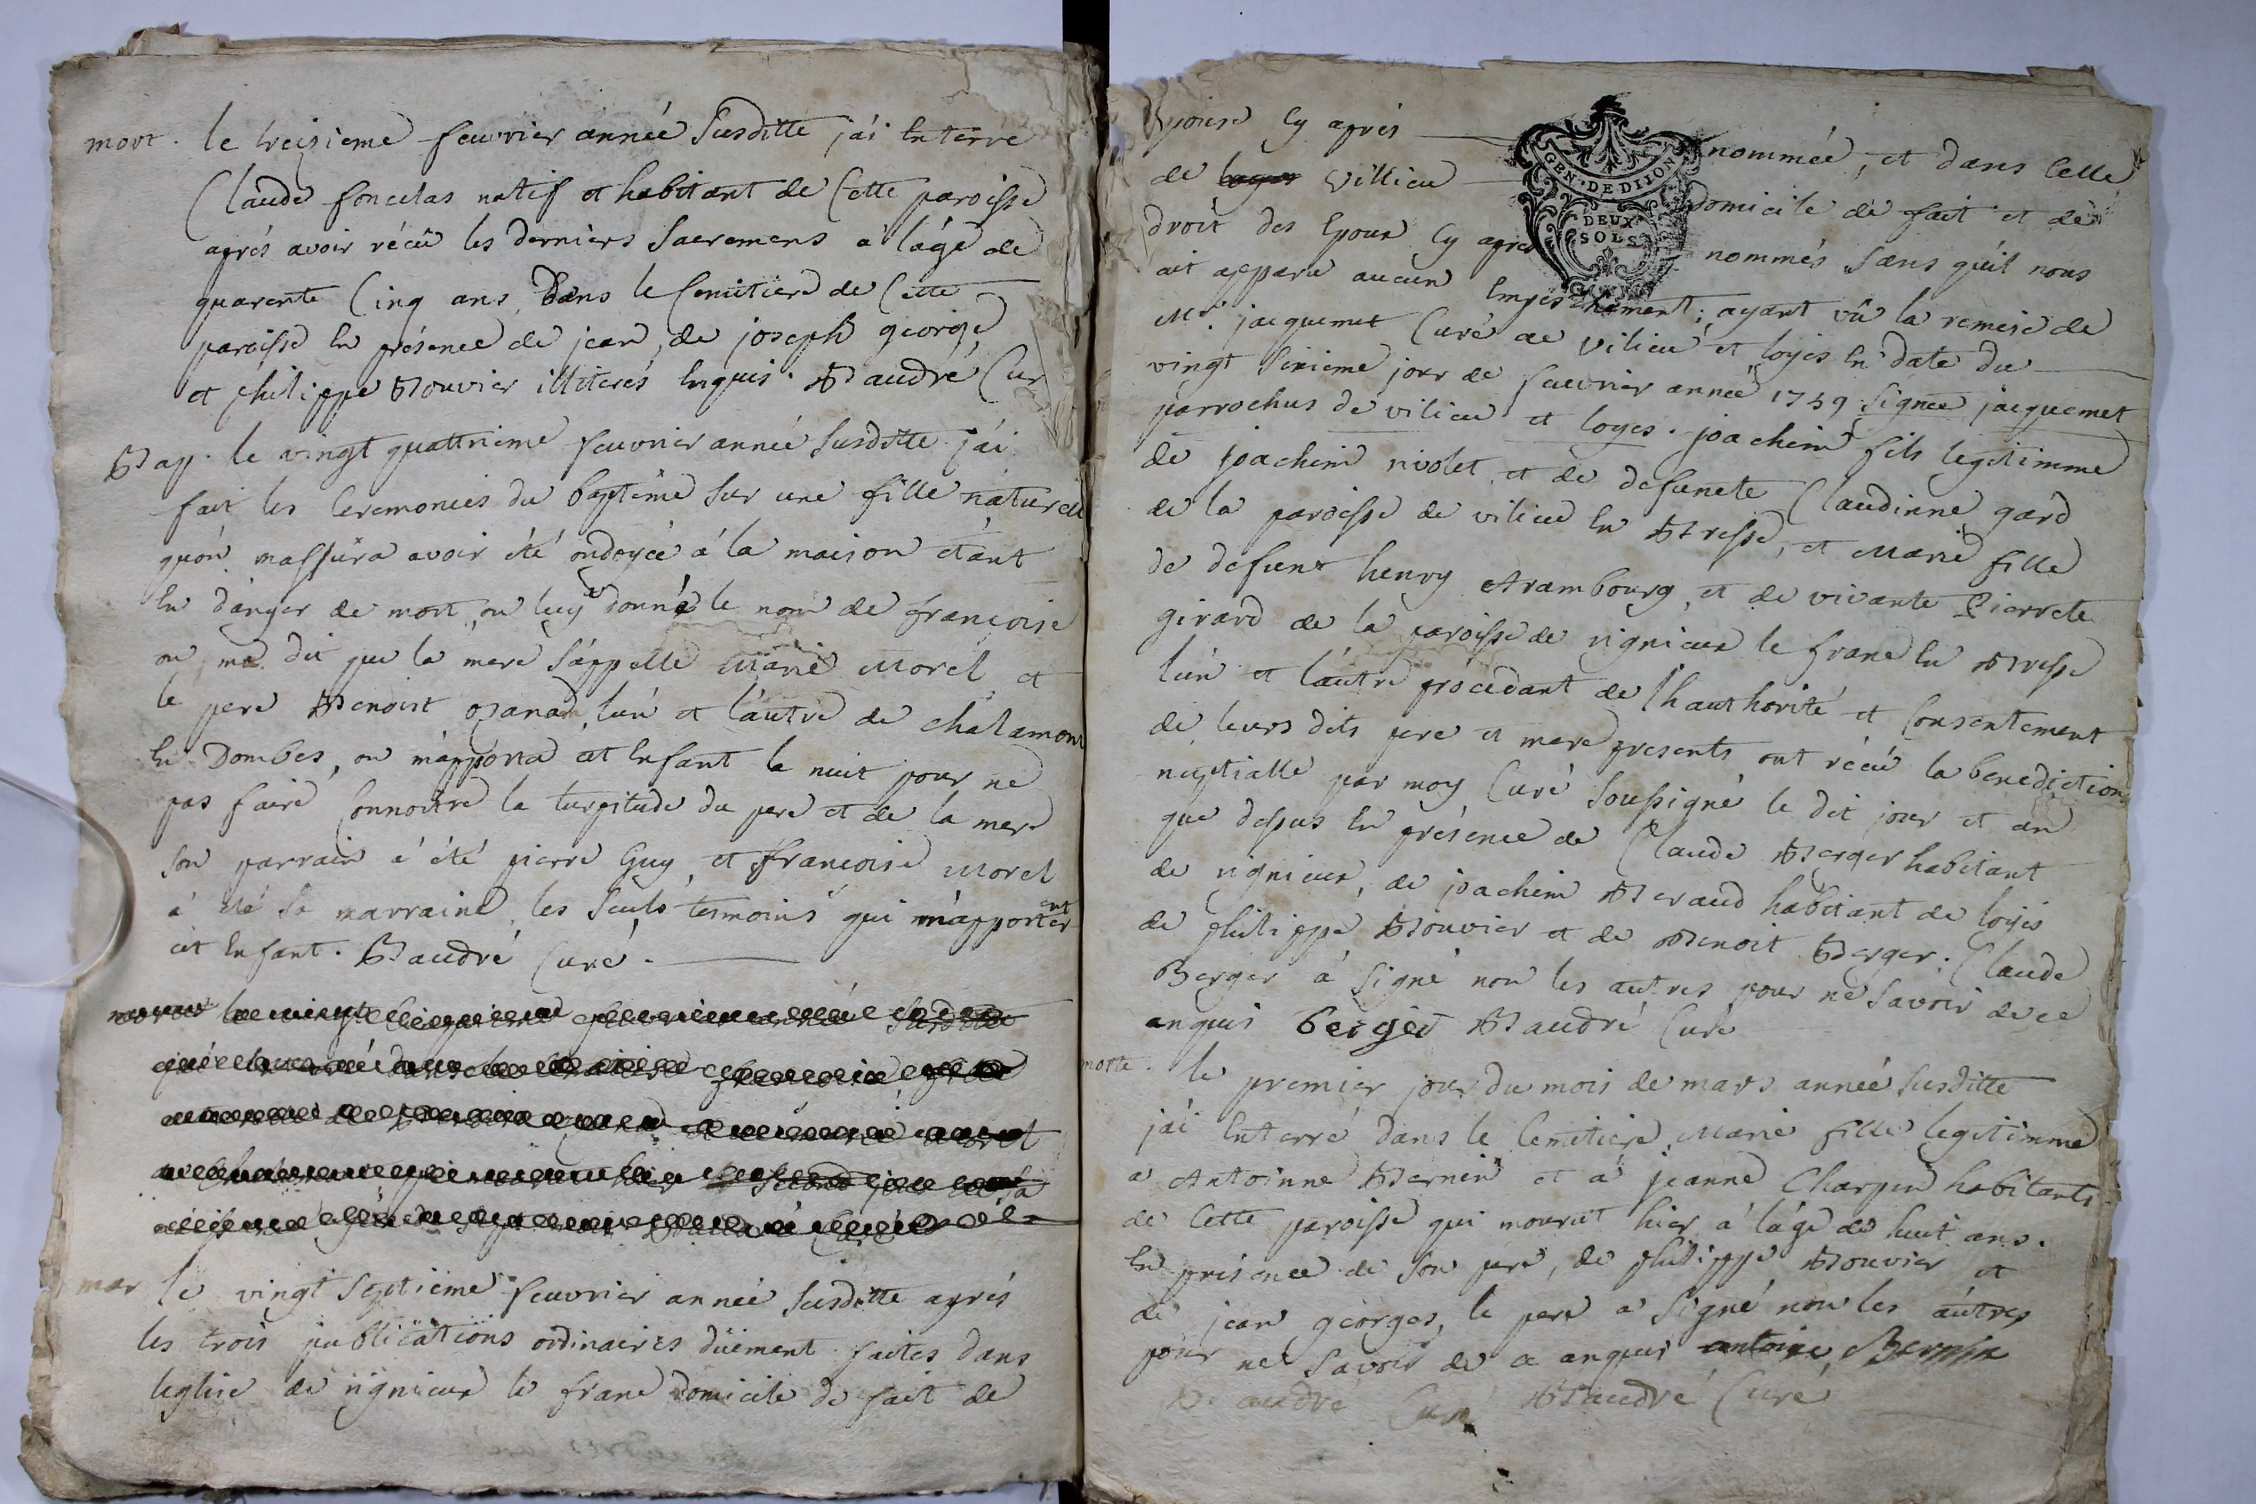 mort. le treizieme feuvrier année susditte j'ai enterré
Claude foncelas natif et habitant de Cette paroisse
aprés avoir récû les derniers sacremens a lâge de
quarente Cinq ans, dans le Cemitiere de Cette
paroisse en présence de jean, de joseph george
et philippe Bouvier illiterés enquis. Baudré Curé
Bap. le vingt quattrieme feuvrier année susditte j'ai
fait les Ceremonies du baptême sur une fille naturelle
qu'on m'assûra avoir été ondoyée á la maison étant
en dânger de mort, on luy a donné le nom de francoise
on ma dit que la mere s'appelle Marie Morel et
le pere Benoist ozanad, lun et lautre de chalamont
en Dombes, on m'apporta cet enfant la nuit pour ne
pas faire Connoitre la turpitude du pere et de la mere
son parrain á été pierre Guy, et francoise Morel
á été sa marraine, les seuls temoins qui m'apporterent
cet enfant. Baudré Curé.
mar le vingt septieme feuvrier année susditte aprés
les trois publications ordinaires düement faites dans
leglise de rignieux le franc domicile de fait de
Epouse Cy aprés nommée, et dans Celle
de loyes villieu domicile de fait et de
droit des Epoux Cy aprés nommés sans qu'il nous
ait apparu aucun empeschement; ayant vû la remise de
Mr. jacquemet Curé de vilieu et loyes en date du
vingt sixieme jour de feuvrier année 1759 signée jacquemet
parrochus de vilieu et loyes. joachim fils legitimme
de joachim nivolet et de defuncte Claudinne gard
de la paroisse de vilieu en Bresse, et Marie fille
de defunt henry Arambourg, et de vivante Pierrete
girard de la paroisse de rignieux le franc en Bresse
lun et lautre procédant de lhauthorité et Consentement
de leurs dits pere et mere presents ont récû la benediction
nuptialle par moy Curé soussigné le dit jour et an
que dessus en présence de Claude Berger habitant
de rignieux, de joachim Beraud habitant de loyes
de philippe Bouvier et de Benoit Berger. Claude
Berger á signé non les autres pour ne savoir de ce
enquis berger Baudré Curé
morte. le premier jour du mois de mars année susditte
j'ai enterré dans le Cemitiere Marie fille legitimme
a Antoinne Bernin et a jeanne Charpin habitants
de Cette paroisse qui mourut hier á lâge de huit ans.
en présence de son pere, de philippe Bouvier et
de jean georges, le pere a signé non les autres
pour ne savoir de ce enquis antoine Bernin
Baudré Curé Baudré Curé
GEN. DE DIJON
DEUX
SOLS